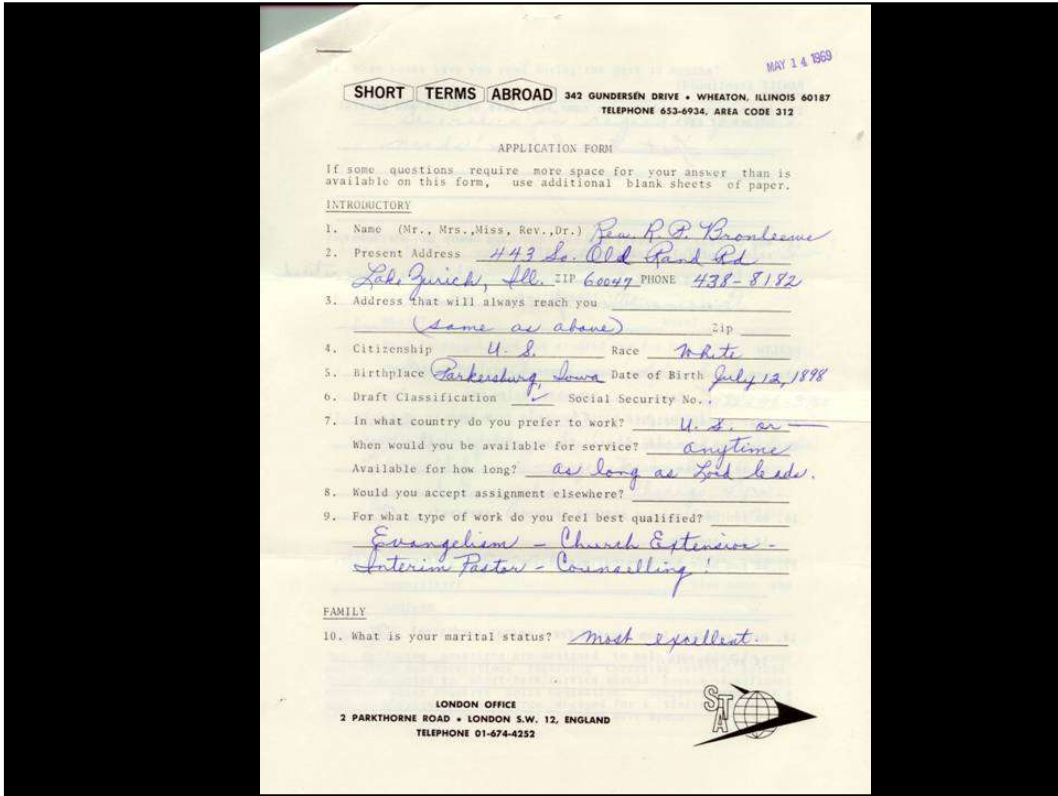 MAY 14 1969
SHORT TERMS ABROAD 342 GUNDERSEN DRIVE • WHEATON, ILLINOIS 60187
TELEPHONE 653-6934, AREA CODE 312
APPLICATION FORM
If some questions require more space for your answer than is
available on this form, use additional blank sheets of paper.
INTRODUCTORY
1. Name (Mr., Mrs.,Miss, Rev.,Dr.) Rev. R. P. Bronleewe
2. Present Address 443 So. Old Rand Rd
Lake Zurich, Ill. ZIP 60047 PHONE 438-8182
3. Address that will always reach you
(same as above) Zip
4. Citizenship U. S. Race White
5. Birthplace Parkersburg, Iowa Date of Birth July 12, 1898
6. Draft Classification ✓ Social Security No.
7. In what country do you prefer to work? U. S. or —
When would you be available for service? anytime
Available for how long? as long as Lord leads.
8. Would you accept assignment elsewhere?
9. For what type of work do you feel best qualified?
Evangelism - Church Extension -
Interim Pastor - Counselling!
FAMILY
10. What is your marital status? most excellent.
LONDON OFFICE
2 PARKTHORNE ROAD • LONDON S.W. 12, ENGLAND
TELEPHONE 01-674-4252
STA